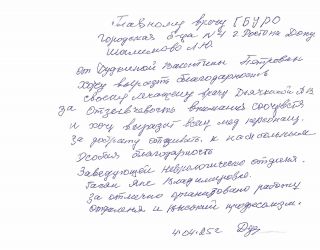 Главному врачу ГБУРО
Городская б-ца №1 г Ростова Дону
Шалимова Л.Ю.
от Буданной Валентины Петровны
Хочу выразить благодарность
своему лечащему врачу
За Отзывчивость внимания
и хочу выразить вам мед персонал.
За доброту отзывчив. к нам больным
Особая благодарность
Заведующей Неврологическо отделен.
Яне Владимировне.
За отлично организовано работу
отделения и высокий професионализм.
4.04.25г